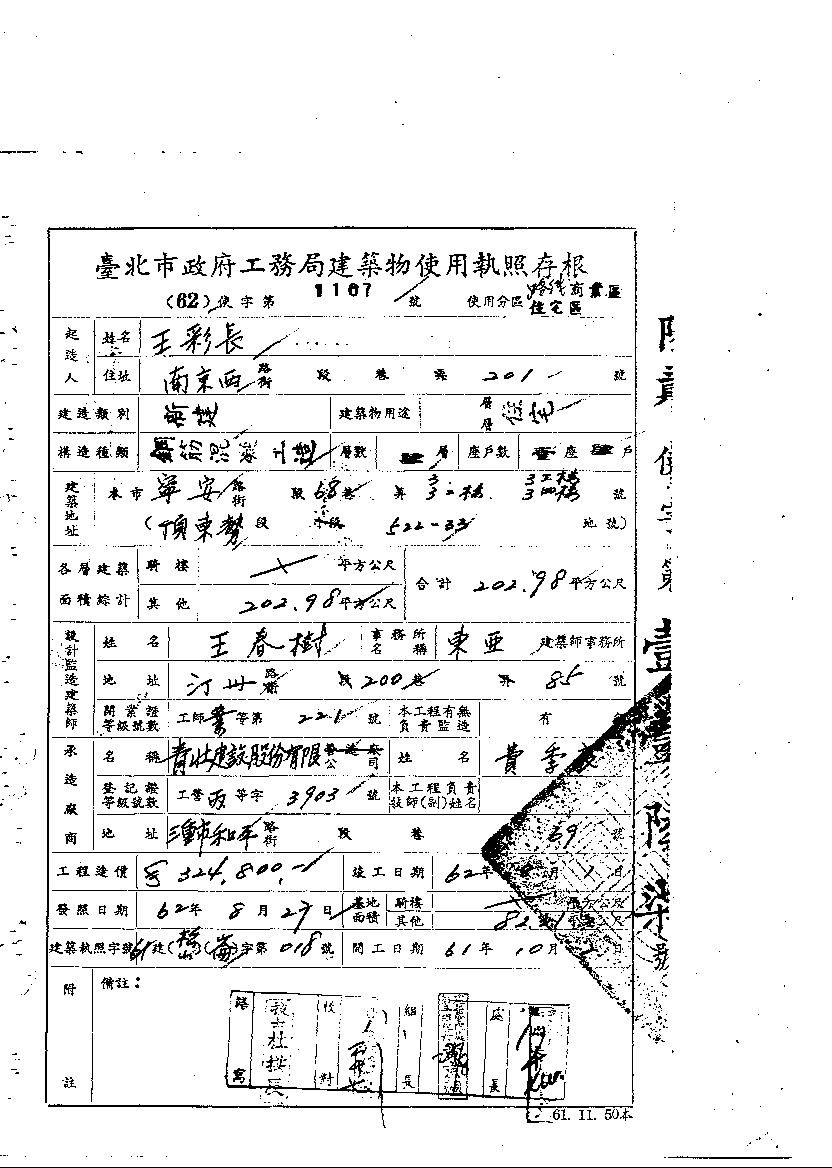 臺北市政府工務局建築物使用執照存根
(62) 使字第 1167 號 使用分區 路線商業區
住宅區
起造人 姓名 王彩長
住址 南京西 路街 段 巷 弄 201 號
建造類別 新建 建築物用途 層層 住宅
構造種類 鋼筋混凝土造 層數 層 座戶數 座 戶
建築地址 本市 寧安 路街 段 68 巷 弄 3 3-二樓 3三樓 3四樓 號
(頂東勢 段 小段 522-33 地號)
各層建築面積綜計 騎樓 平方公尺 合計 202.98 平方公尺
其他 202.98 平方公尺
設計監造建築師 姓名 王春樹 事務所名稱 東亞 建築師事務所
地址 汀州 路街 段 200 巷 弄 85 號
開業證等級號數 工師業等第 221 號 本工程有無負責監造 有
承造廠商 名稱 青壯建設股份有限公司 姓名 黃季
登記證等級號數 工營丙等字 3903 號 本工程負責技師(副)姓名
地址 三重市和平 路街 段 巷 69 號
工程造價 324,800 竣工日期 62年 月 日
發照日期 62年 8月 27日 基地面積 騎樓 平方公尺
其他 82. 平方公尺
建築執照字號 61建(松山)(崙)字第 018 號 開工日期 61年 10月 日
附註 備註：
繕寫 校對 組長 處長
61. 11. 50本
壹壹陸柒號